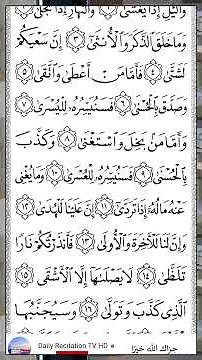 وَٱلَّيْلِ إِذَا يَغْشَىٰ ١ وَٱلنَّهَارِ إِذَا تَجَلَّىٰ ٢
وَمَا خَلَقَ ٱلذَّكَرَ وَٱلْأُنثَىٰ ٣ إِنَّ سَعْيَكُمْ
لَشَتَّىٰ ٤ فَأَمَّا مَنْ أَعْطَىٰ وَٱتَّقَىٰ ٥
وَصَدَّقَ بِٱلْحُسْنَىٰ ٦ فَسَنُيَسِّرُهُۥ لِلْيُسْرَىٰ ٧
وَأَمَّا مَنۢ بَخِلَ وَٱسْتَغْنَىٰ ٨ وَكَذَّبَ
بِٱلْحُسْنَىٰ ٩ فَسَنُيَسِّرُهُۥ لِلْعُسْرَىٰ ١٠ وَمَا يُغْنِى
عَنْهُ مَالُهُۥٓ إِذَا تَرَدَّىٰٓ ١١ إِنَّ عَلَيْنَا لَلْهُدَىٰ ١٢
وَإِنَّ لَنَا لَلْـَٔاخِرَةَ وَٱلْأُولَىٰ ١٣ فَأَنذَرْتُكُمْ نَارًا
تَلَظَّىٰ ١٤ لَا يَصْلَىٰهَآ إِلَّا ٱلْأَشْقَى ١٥
ٱلَّذِى كَذَّبَ وَتَوَلَّىٰ ١٦ وَسَيُجَنَّبُهَا
Daily Recitation TV HD
جزاك الله خيرًا